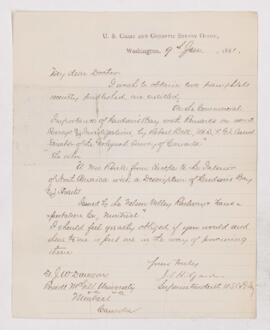 U. S. Coast and Geodetic Survey Office,
Washington, 9th June 1881.
My dear Doctor
I wish to obtain two pamphlets
recently published, are entitled,
On the Commercial
Importance of Hudson's Bay with Remarks on recent
Surveys & Investigations by Robert Bell, M.D, C.E, Assist
Director of the Geological Survey of Canada
The other
A New Route from Europe to the Interior
of North America with a Description of Hudson's Bay
& Straits
Issued by the Nelson Valley Railway & Trans-
portation Co, Montreal
I should feel greatly obliged if you would send
them to me or put me in the way of procuring
them
Yours truly
J. E. Hilgard
Superintendent U.S.C. & G.
Dr J. W. Dawson
McGill University
Montreal
Canada